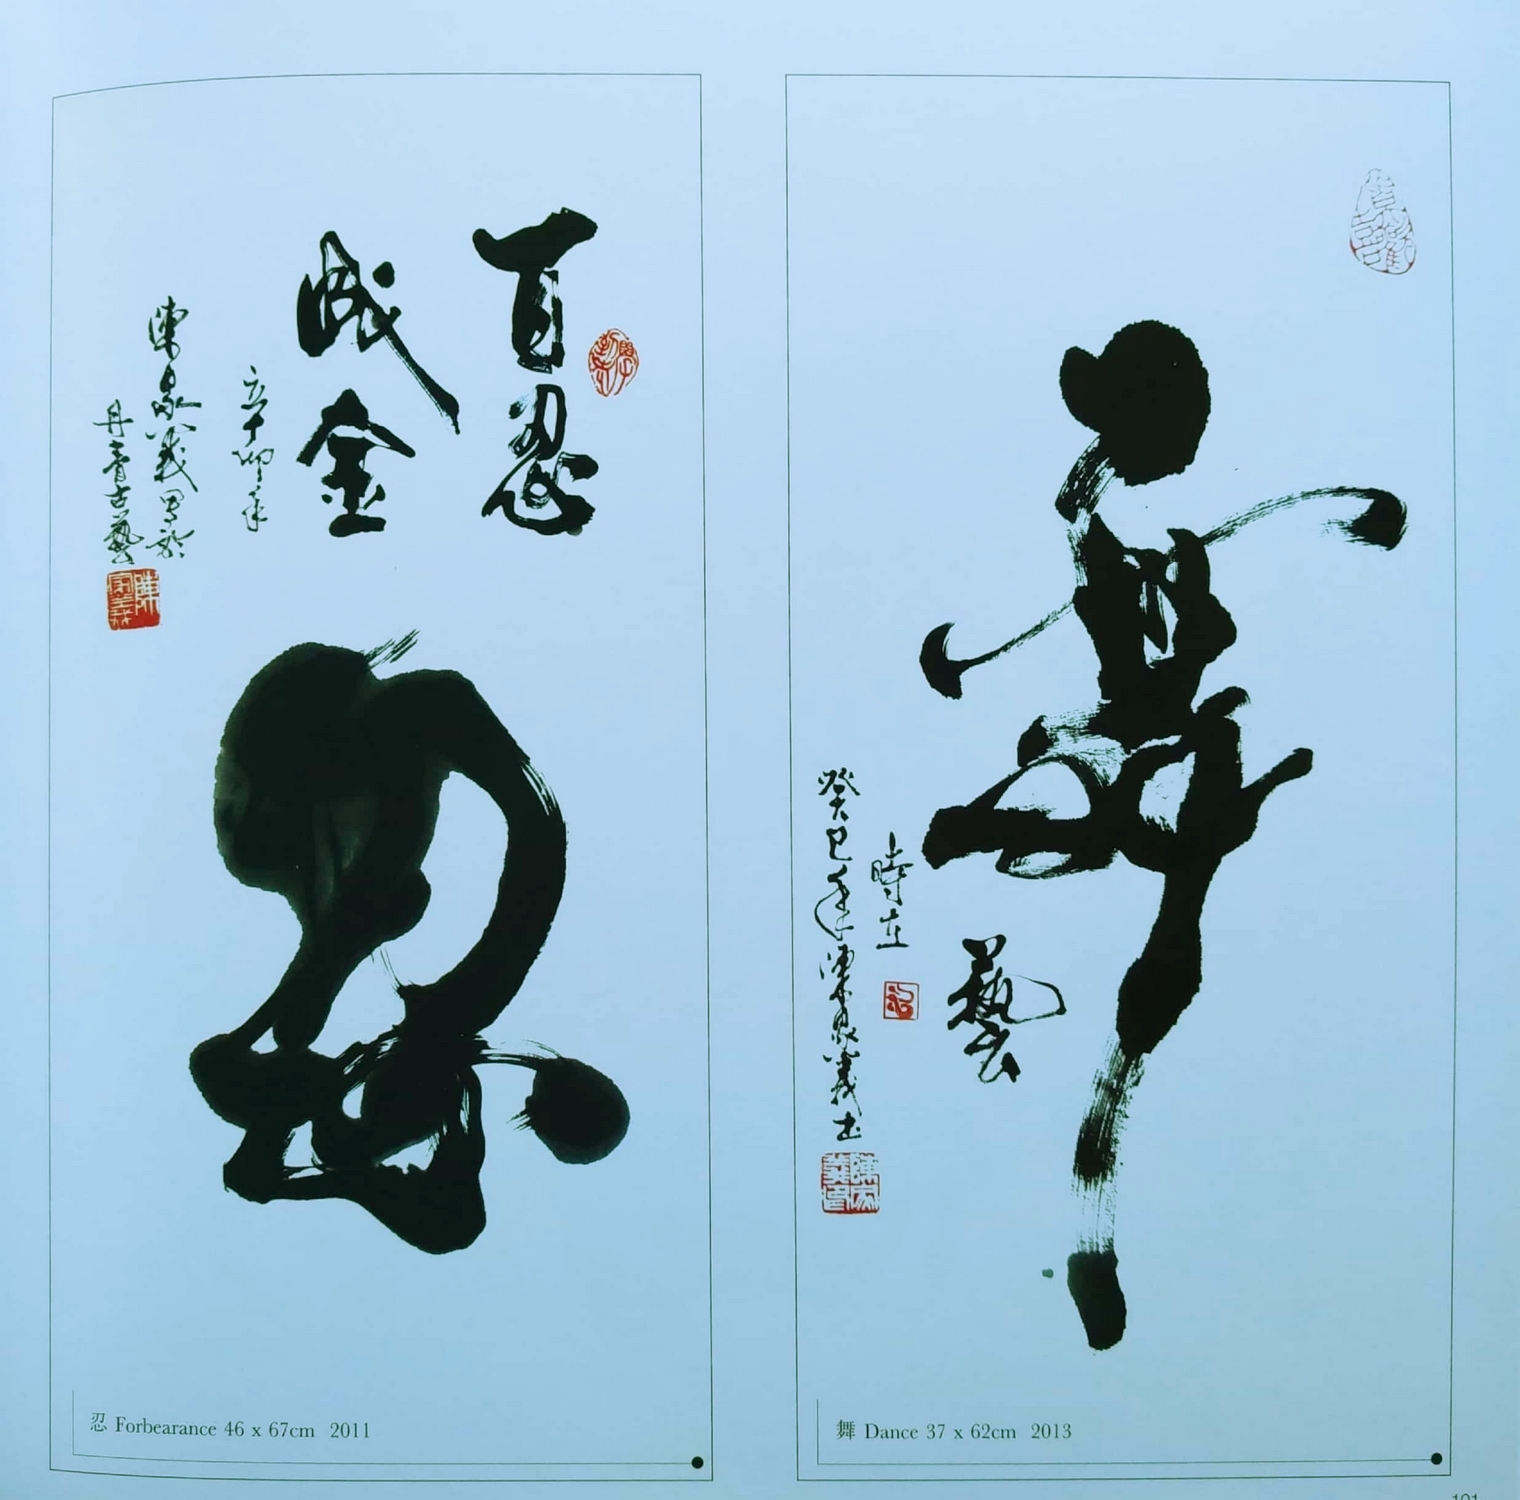 百忍
成金
辛卯年
陳家義寫於
丹青古藝
陳家義
忍
忍 Forbearance 46 x 67cm 2011
舞
藝
時在
癸巳年陳家義書
陳家義印
舞 Dance 37 x 62cm 2013
101